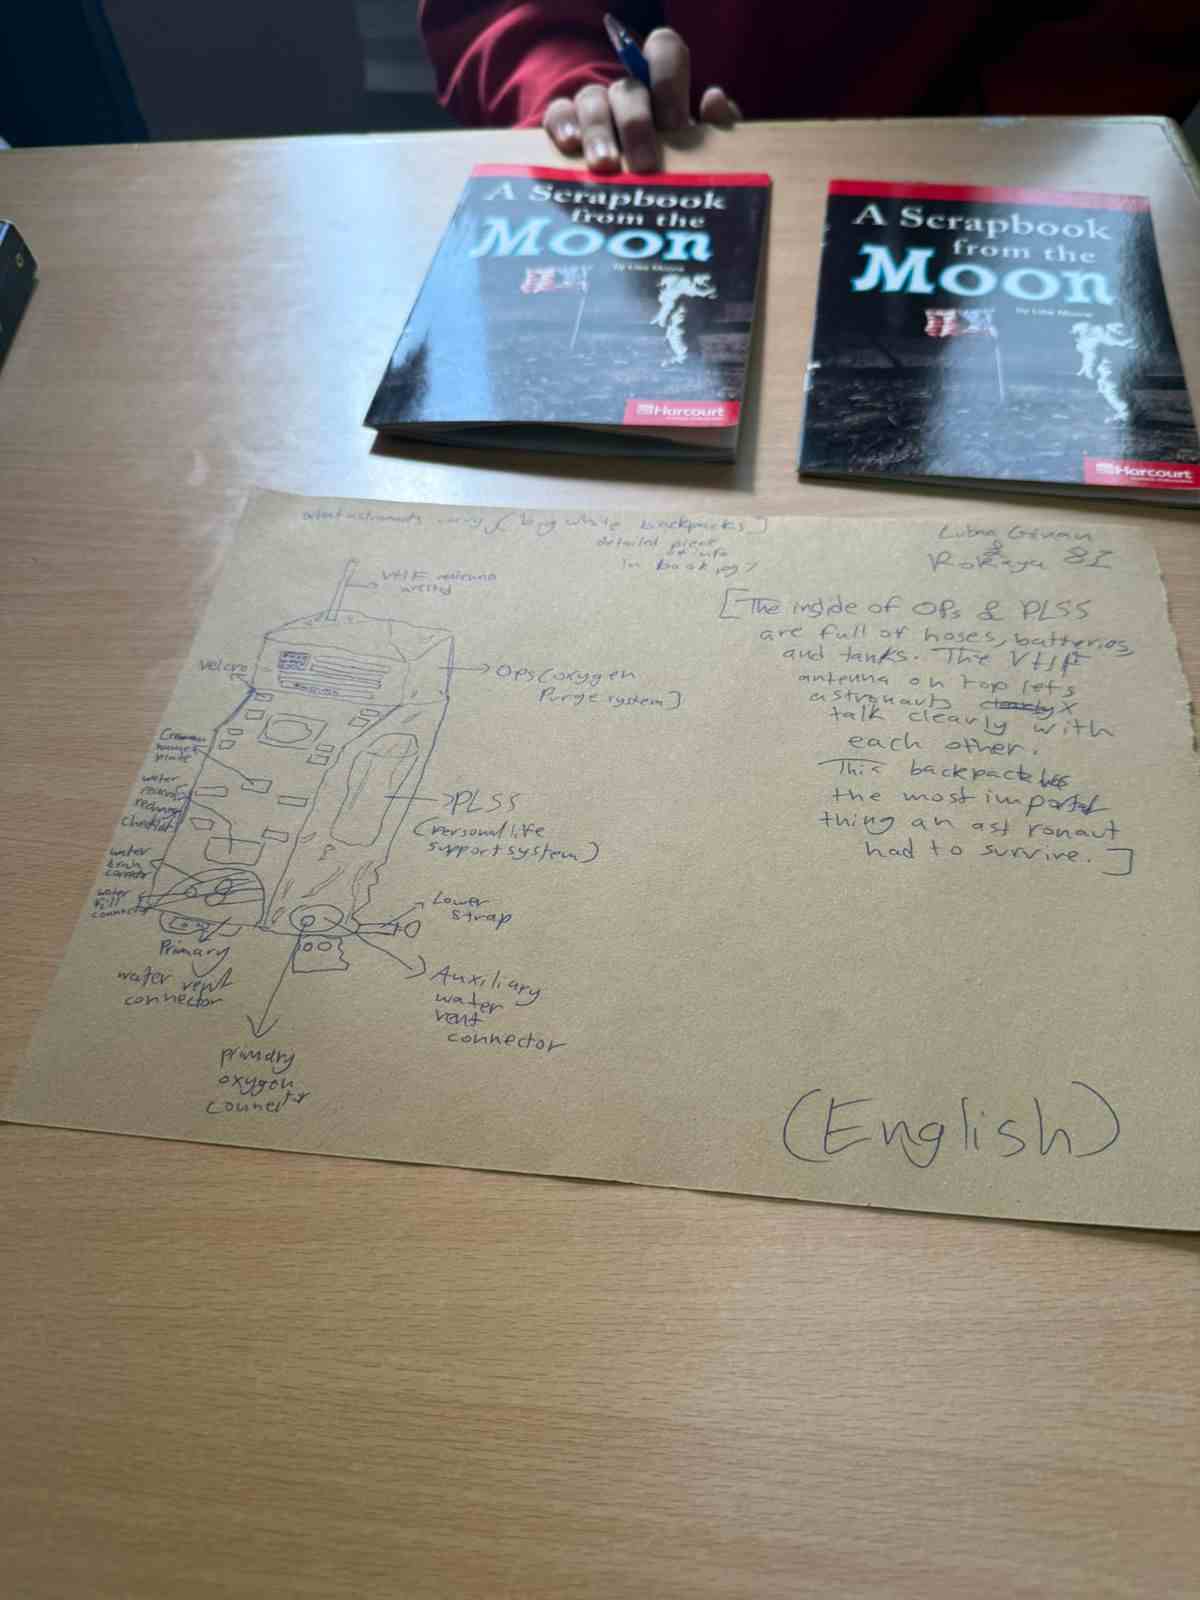 A Scrapbook
from the
Moon
by Lisa Moore
Harcourt
A Scrapbook
from the
Moon
by Lisa Moore
Harcourt
carry (big white backpacks]
detailed piece
of info
in book pg 7
Lubna Genan
&
Rokaya 8I
VHF antenna
Velcro
OPS (oxygen
Purge system]
mount
plate
water
checklist
PLSS
(Personal life
support system)
water
drain
connector
water
fill
connector
Lower
strap
Primary
water vent
connector
Auxiliary
water
vent
connector
primary
oxygen
connector
[The inside of OPs & PLSS
are full of hoses, batteries,
and tanks. The VHF
antenna on top lets
astronauts clearly x
talk clearly with
each other.
This backpack was
the most important
thing an astronaut
had to survive.]
(English)